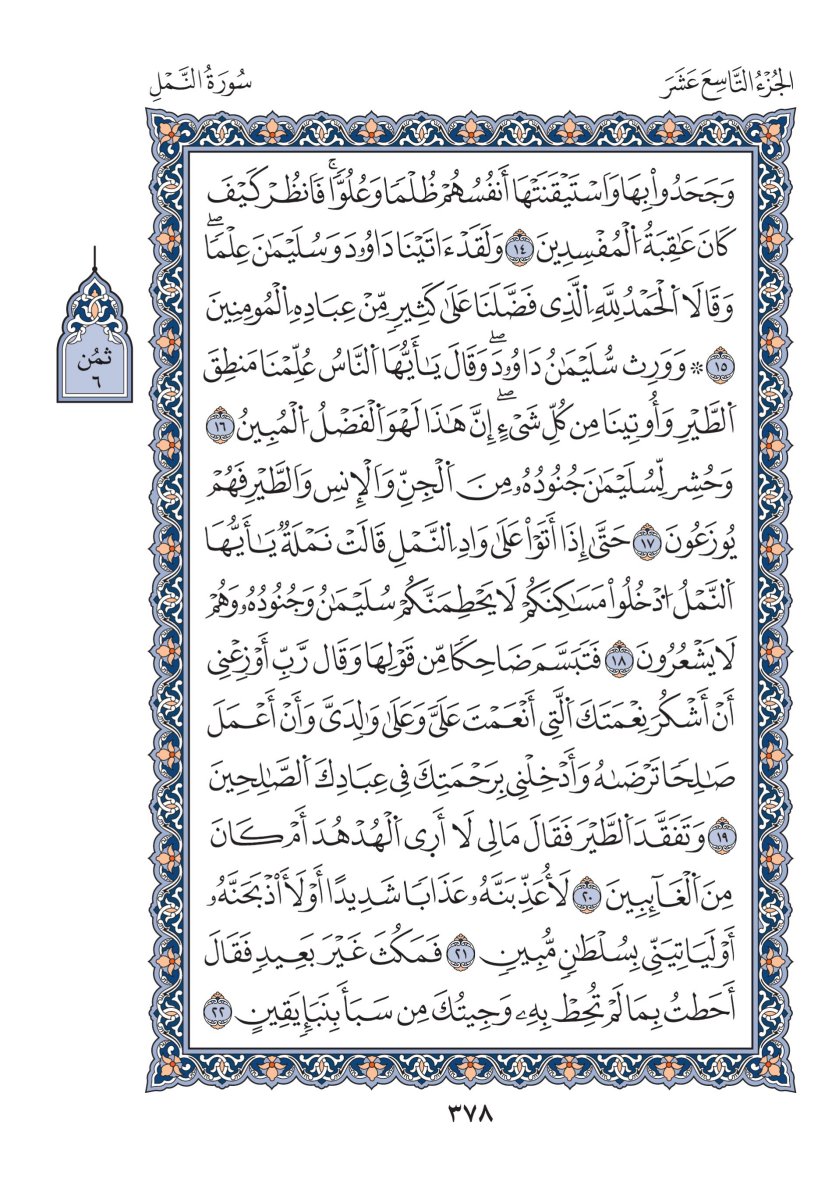 الجُزْءُ التَّاسِعَ عَشَرَ
سُورَةُ النَّمْلِ
وَجَحَدُواْ بِهَا وَٱسۡتَيۡقَنَتۡهَا أَنفُسُهُمۡ ظُلۡمٗا وَعُلُوّٗاۚ فَٱنظُرۡ كَيۡفَ
كَانَ عَٰقِبَةُ ٱلۡمُفۡسِدِينَ ١٤ وَلَقَدۡ ءَاتَيۡنَا دَاوُۥدَ وَسُلَيۡمَٰنَ عِلۡمٗاۖ
وَقَالَا ٱلۡحَمۡدُ لِلَّهِ ٱلَّذِي فَضَّلَنَا عَلَىٰ كَثِيرٖ مِّنۡ عِبَادِهِ ٱلۡمُومِنِينَ
١٥ ۞ وَوَرِث سُّلَيۡمَٰنُ دَاوُۥدَۖ وَقَالَ يَٰٓأَيُّهَا ٱلنَّاسُ عُلِّمۡنَا مَنطِقَ
ٱلطَّيۡرِ وَأُوتِينَا مِن كُلِّ شَيۡءٍۖ إِنَّ هَٰذَا لَهۡوَ ٱلۡفَضۡلُ ٱلۡمُبِينُ ١٦
وَحُشِر لِّسُلَيۡمَٰنَ جُنُودُهُۥ مِنَ ٱلۡجِنِّ وَٱلۡإِنسِ وَٱلطَّيۡرِ فَهُمۡ
يُوزَعُونَ ١٧ حَتَّىٰ إِذَا أَتَوۡاْ عَلَىٰ وَادِ ٱلنَّمۡلِ قَالَتۡ نَمۡلَةٞ يَٰٓأَيُّهَا
ٱلنَّمۡلُ ٱدۡخُلُواْ مَسَٰكِنَكُمۡ لَا يَحۡطِمَنَّكُمۡ سُلَيۡمَٰنُ وَجُنُودُهُۥ وَهُمۡ
لَا يَشۡعُرُونَ ١٨ فَتَبَسَّمَ ضَاحِكٗا مِّن قَوۡلِهَا وَقَال رَّبِّ أَوۡزِعۡنِي
أَنۡ أَشۡكُرَ نِعۡمَتَكَ ٱلَّتِي أَنۡعَمۡتَ عَلَيَّ وَعَلَىٰ وَٰلِدَيَّ وَأَنۡ أَعۡمَلَ
صَٰلِحٗا تَرۡضَىٰهُ وَأَدۡخِلۡنِي بِرَحۡمَتِكَ فِي عِبَادِكَ ٱلصَّٰلِحِينَ
١٩ وَتَفَقَّدَ ٱلطَّيۡرَ فَقَالَ مَالِي لَا أَرَى ٱلۡهُدۡهُدَ أَمۡ كَانَ
مِنَ ٱلۡغَآئِبِينَ ٢٠ لَأُعَذِّبَنَّهُۥ عَذَابٗا شَدِيدًا أَوۡ لَأَاْذۡبَحَنَّهُۥ
أَوۡ لَيَاتِيَنِّي بِسُلۡطَٰنٖ مُّبِينٖ ٢١ فَمَكُثَ غَيۡرَ بَعِيدٖ فَقَالَ
أَحَطتُ بِمَا لَمۡ تُحِطۡ بِهِۦ وَجِيتُكَ مِن سَبَأَ بِنَبَإٖ يَقِينٍ ٢٢
ثمُن
٦
٣٧٨